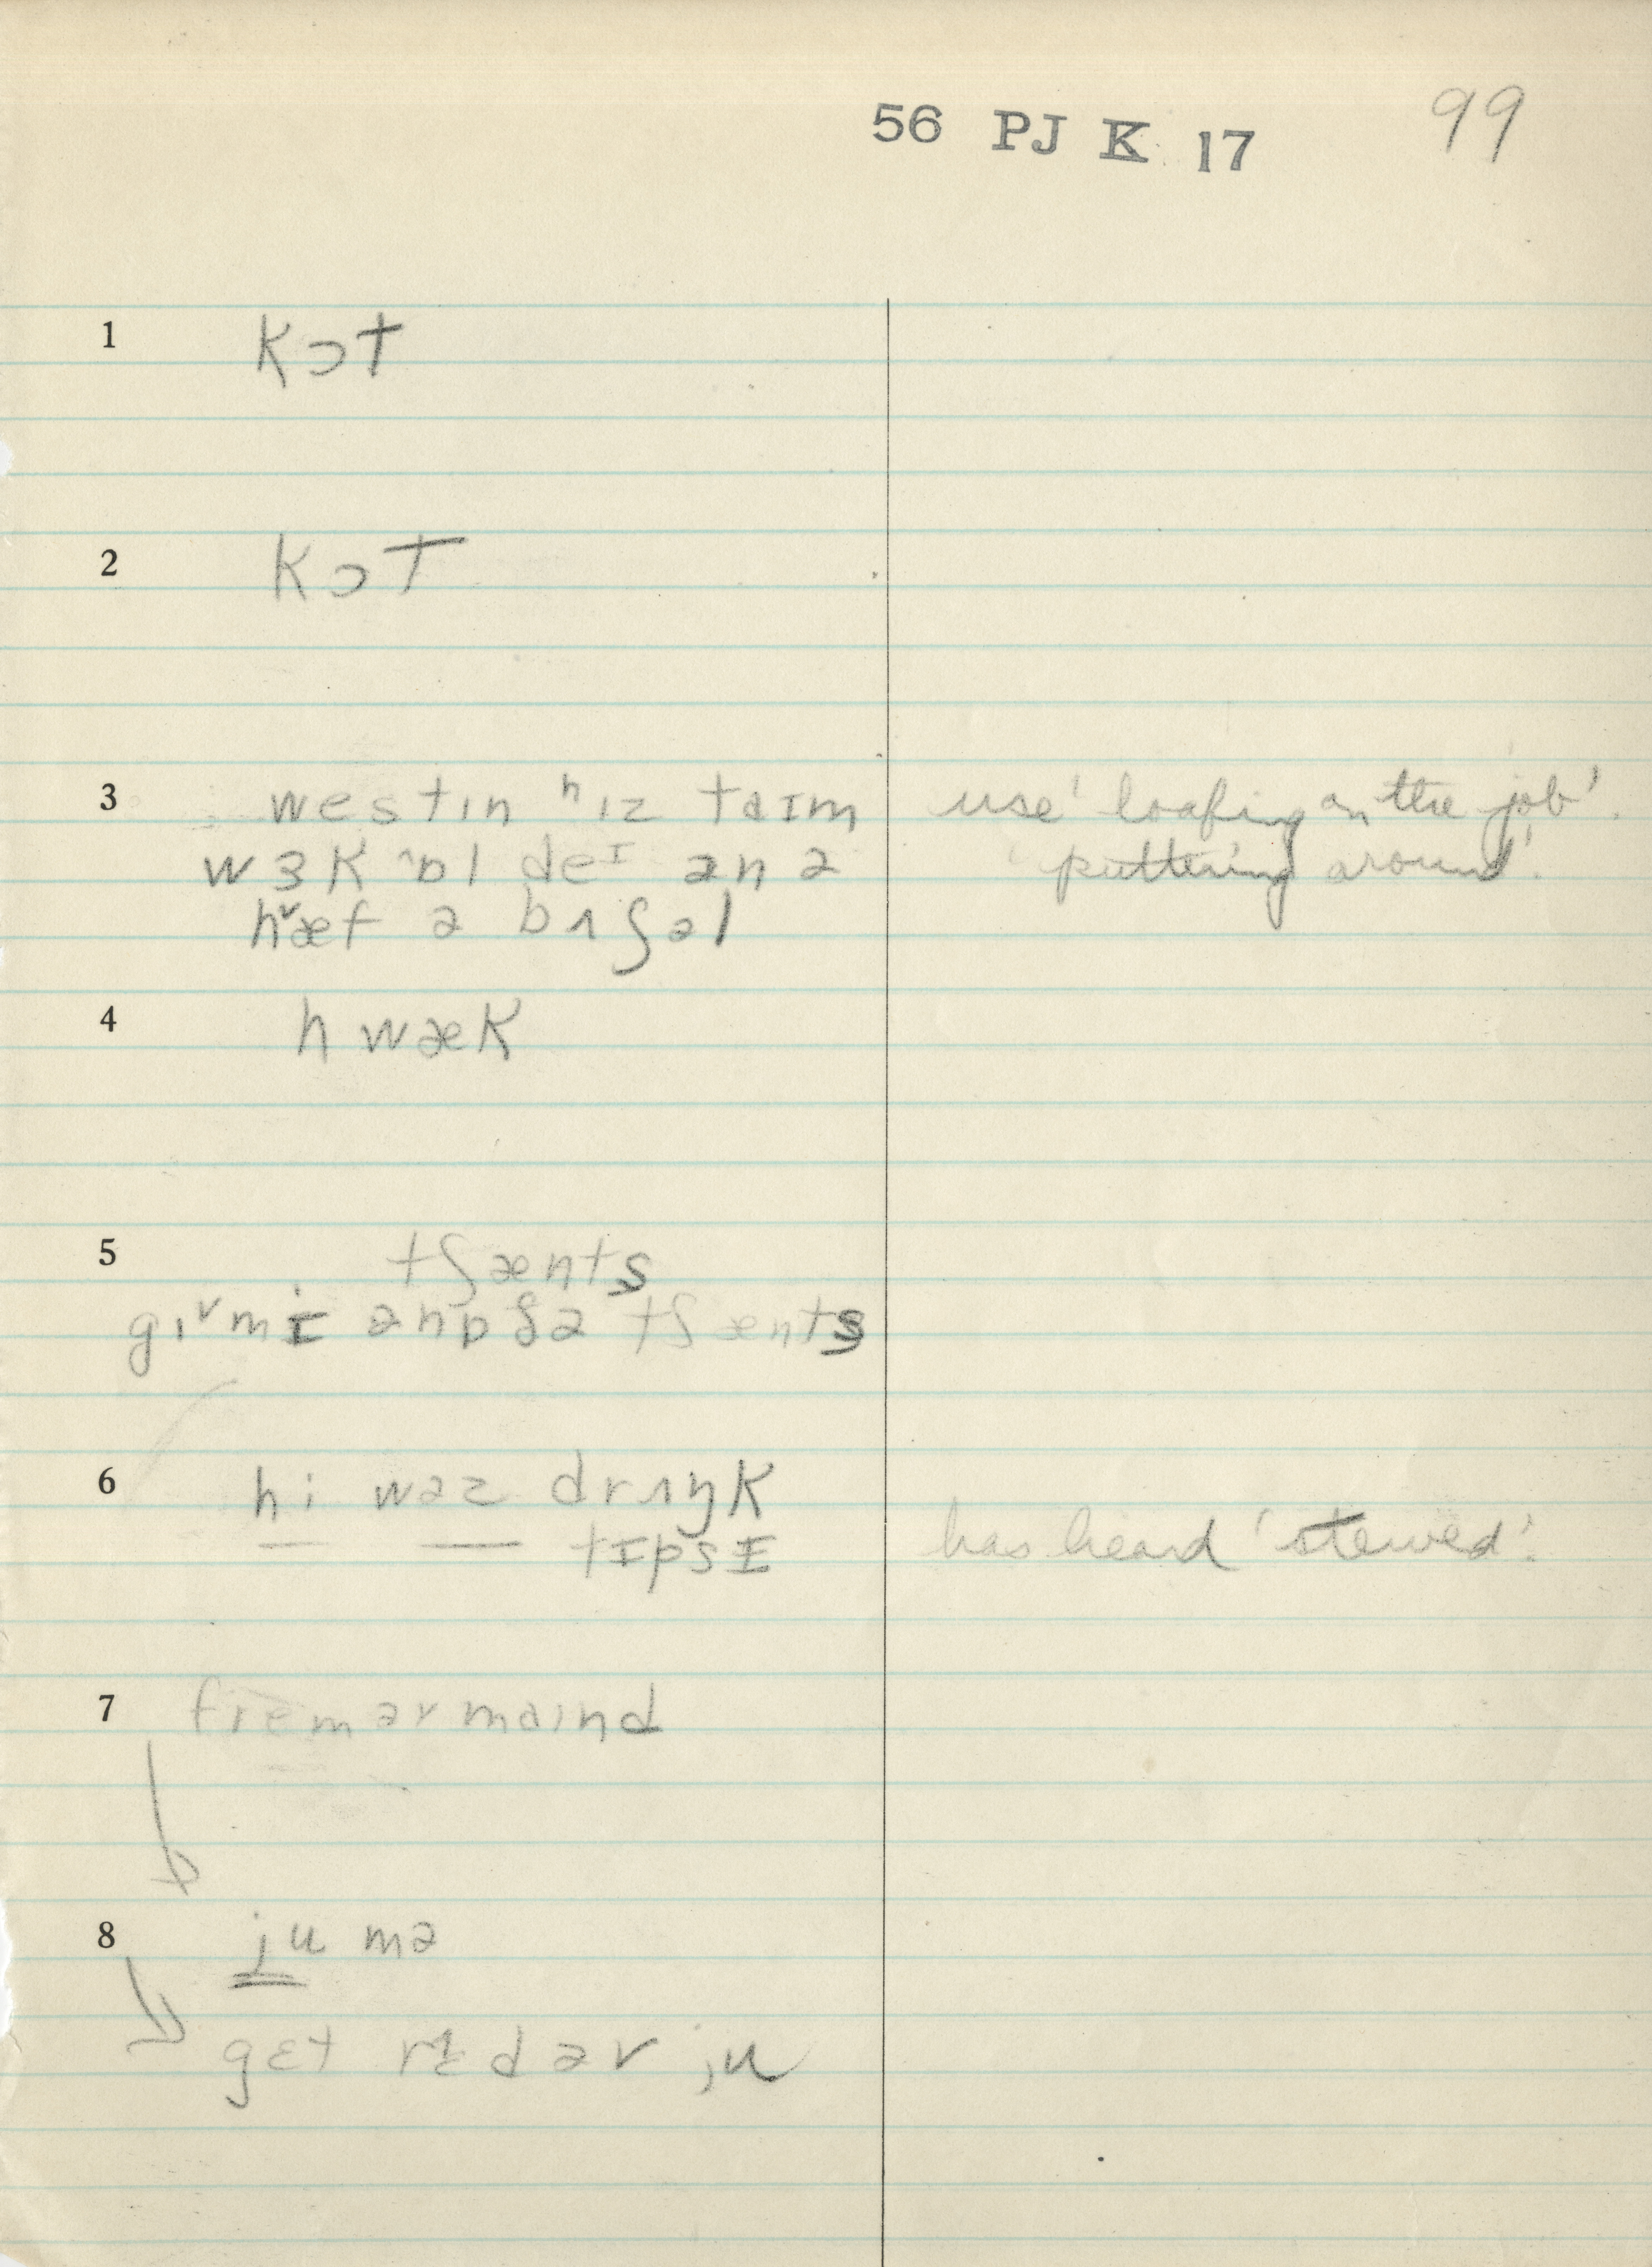 56 PJ K 17 99
1 kɔt
2 kɔt
3 westɪn ʰɪz taɪm use 'loafing on the job'.
wɜk ɒl deɪ ən ə 'puttering around'.
hᵛæf ə bʌʃəl
4 hwæk
5 tʃænts
gɪᵛmɪ ənɒðə tʃænts
6 hi wəz drʌŋk
— — tɪpsɪ has heard 'stewed'.
7 maɪnd
8 ju mə
gɛt ju